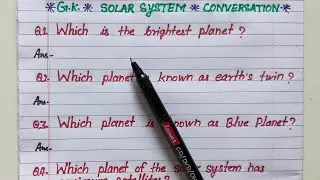 *G.K.* SOLAR SYSTEM * CONVERSATION*
Q1. Which is the brightest planet?
Ans-
Q2. Which planet known as earth's twin?
Ans-
Q3. Which planet is known as Blue Planet?
Ans-
Q4. Which planet of the solar system has
satellites?